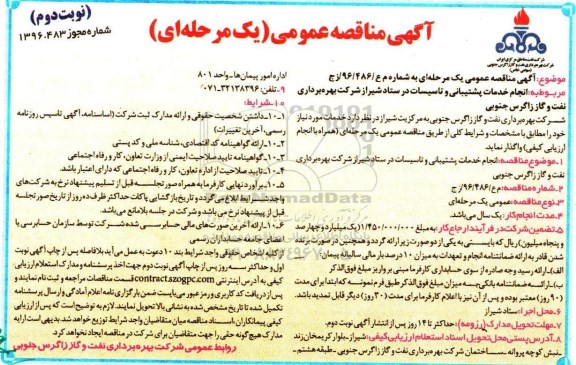 (نوبت دوم)
شماره مجوز ۱۳۹۶.۴۸۳
آگهی مناقصه عمومی (یک مرحله‌ای)
شرکت بهره‌برداری نفت و گاز زاگرس جنوبی
موضوع: آگهی مناقصه عمومی یک مرحله‌ای به شماره م ع/۹۶/۴۸۶/زج
مربوط به: انجام خدمات پشتیبانی و تاسیسات در ستاد شیراز شرکت بهره‌برداری
نفت و گاز زاگرس جنوبی
شرکت بهره‌برداری نفت و گاز زاگرس جنوبی به مرکزیت شیراز در نظر دارد خدمات مورد نیاز
خود را مطابق با مشخصات و شرایط کلی از طریق مناقصه عمومی یک مرحله‌ای (همراه با انجام
ارزیابی کیفی) واگذار نماید.
۱-موضوع مناقصه: انجام خدمات پشتیبانی و تاسیسات در ستاد شیراز شرکت بهره‌برداری
نفت و گاز زاگرس جنوبی
۲-شماره مناقصه: م ع/۴۸۶/۹۶/زج
۳-نوع مناقصه: عمومی یک مرحله‌ای
۴-مدت انجام کار: یک سال می‌باشد.
۵-تضمین شرکت در فرآیند ارجاع کار: به مبلغ ۱/۱۴۵۰/۰۰۰/۰۰۰ یک میلیارد و چهارصد
و پنجاه میلیون) ریال که بایستی به یکی از دو صور زیر ارائه گردد و همچنین در صورت برنده
شدن قادر به ارائه ضمانتنامه انجام و تعهدات به میزان ۱۰ درصد بار مالی سالیانه پیمان
الف). ارائه رسید وجه صادره از سوی حسابداری کارفرما مبنی بر واریز مبلغ فوق الذکر
ب). ارائه ضمانتنامه بانکی جهت میزان مبلغ فوق الذکر طبق فرم نمونه که ابتدا برای مدت
(۹۰ روز) معتبر بوده و پس از آن نیز با اعلام کارفرما برای مدت (۳۰ روز) دیگر قابل تمدید باشد.
۶-محل اجرا: ستاد شیراز
۷-مهلت تحویل مدارک (رزومه): حداکثر تا ۱۴ روز پس از انتشار آگهی نوبت دوم.
۸-آدرس پستی محل تحویل اسناد استعلام ارزیابی کیفی: شیراز- بلوار کریمخان زند
نبش کوچه پروانه- ساختمان شرکت بهره‌برداری نفت و گاز زاگرس جنوبی - طبقه هشتم -
اداره امور پیمان‌ها- واحد ۸۰۱
۹-تلفن: ۰۷۱-۳۲۱۳۸۳۹۶
۱۰-شرایط:
۱-۱۰-داشتن شخصیت حقوقی و ارائه مدارک ثبت شرکت (اساسنامه، آگهی تاسیس روزنامه
رسمی، آخرین تغییرات)
۲-۱۰-ارائه گواهینامه کد اقتصادی، شناسه ملی و کد پستی
۳-۱۰-گواهینامه تایید صلاحیت ایمنی از وزارت تعاون، کار و رفاه اجتماعی
۴-۱۰-تایید صلاحیت از اداره تعاون، کار و رفاه اجتماعی که دارای اعتبار باشد.
۵-۱۰-برآورد نهایی کارفرما به همراه صورتجلسه قبل از تسلیم پیشنهاد نرخ به شرکت‌های
واجد شرایط ابلاغ می‌گردد و تاریخ بازگشایی پاکات حداکثر ظرف ده روز از تاریخ صورتجلسه
قبل از پیشنهاد نرخ می‌باشد و شرکت در جلسه بلامانع می‌باشد.
۶-۱۰-ارائه آخرین صورت‌های مالی حسابرسی شده شرکت توسط سازمان حسابرسی یا
اعضای جامعه حسابداران رسمی
از کلیه اشخاص حقوقی واجد شرایط بند ۱۰ دعوت به عمل می‌آید بلافاصله پس از چاپ آگهی نوبت
اول و حداکثر سه روز پس از چاپ آگهی نوبت دوم جهت اخذ پرسشنامه و مدارک استعلام ارزیابی
کیفی به آدرس اینترنتی contract.szogpc.com قسمت مناقصات مراجعه و ثبت نام نمایند و
پس از دریافت کد کاربری و رمز عبور می‌بایست ضمن بارگزاری نامه اعلام آمادگی و ارسال پرسشنامه
تکمیل شده تا تاریخ مشخص شده به نشانی بالا تحویل نمایند. لازم به توضیح است که پس از ارزیابی
کیفی پیمانکاران، اسناد مناقصه میان متقاضیان واجد شرایط توزیع خواهد شد. بدیهی است ارایه
مدارک هیچ‌گونه حقی را جهت متقاضیان برای شرکت در مناقصه ایجاد نخواهد کرد
روابط عمومی شرکت بهره‌برداری نفت و گاز زاگرس جنوبی